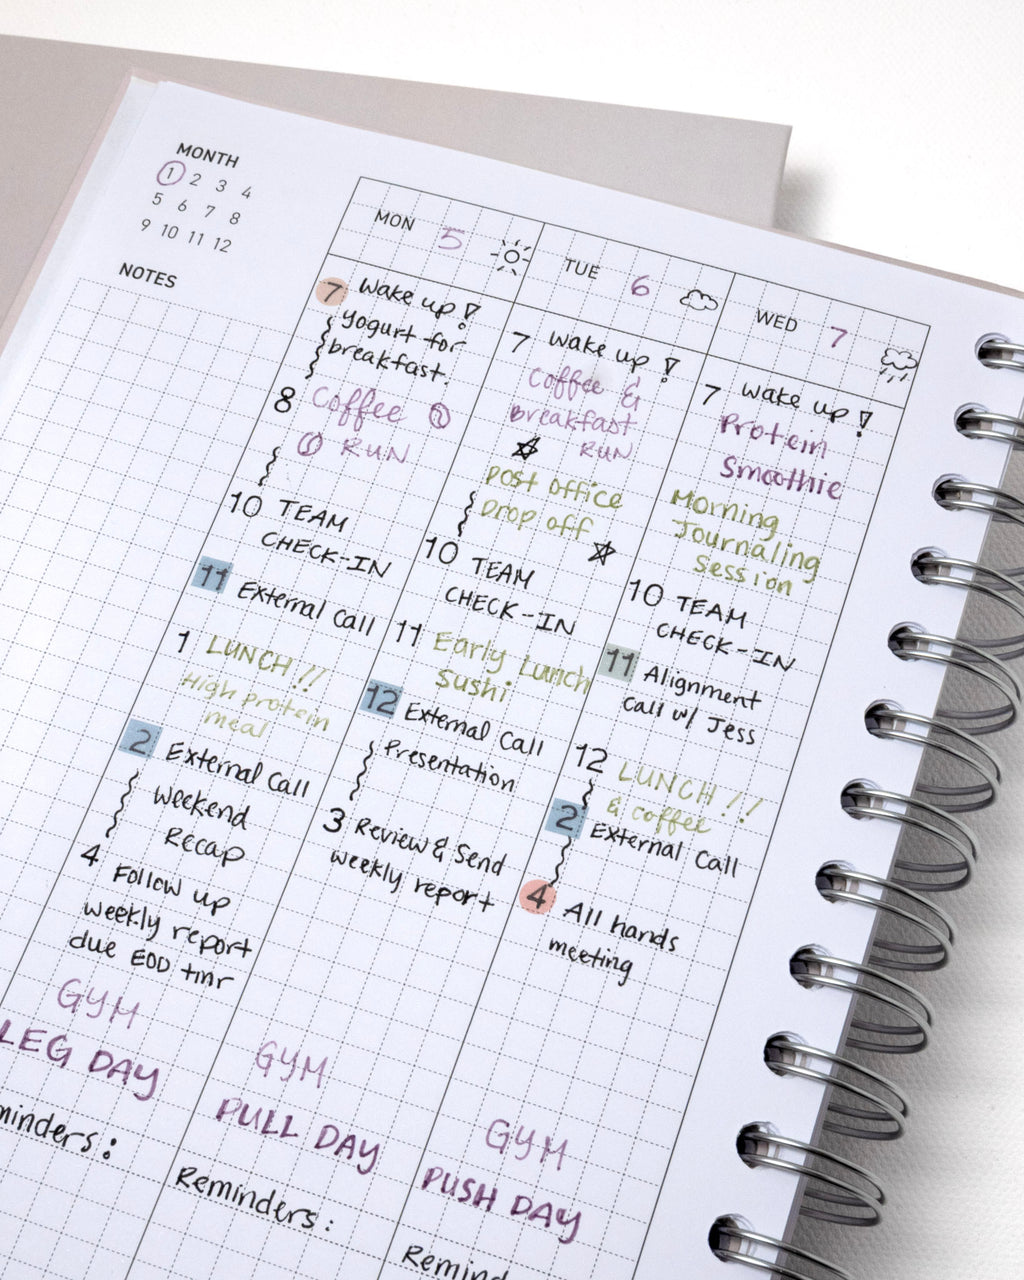 MONTH
1 2 3 4
5 6 7 8
9 10 11 12
NOTES
MON 5
7 Wake up!
Yogurt for
breakfast.
8 Coffee
RUN
10 TEAM
CHECK-IN
11 External Call
1 LUNCH!!
High protein
meal
2 External Call
Weekend
Recap
4 Follow up
weekly report
due EOD tmr
GYM
LEG DAY
minders:
TUE 6
7 Wake up!
Coffee &
Breakfast
RUN
Post office
Drop off
10 TEAM
CHECK-IN
11 Early Lunch
Sushi
12 External Call
Presentation
3 Review & Send
weekly report
GYM
PULL DAY
Reminders:
WED 7
7 Wake up!
Protein
Smoothie
Morning
Journaling
Session
10 TEAM
CHECK-IN
11 Alignment
Call w/ Jess
12 LUNCH!!
& coffee
2 External Call
4 All hands
meeting
GYM
PUSH DAY
Remind